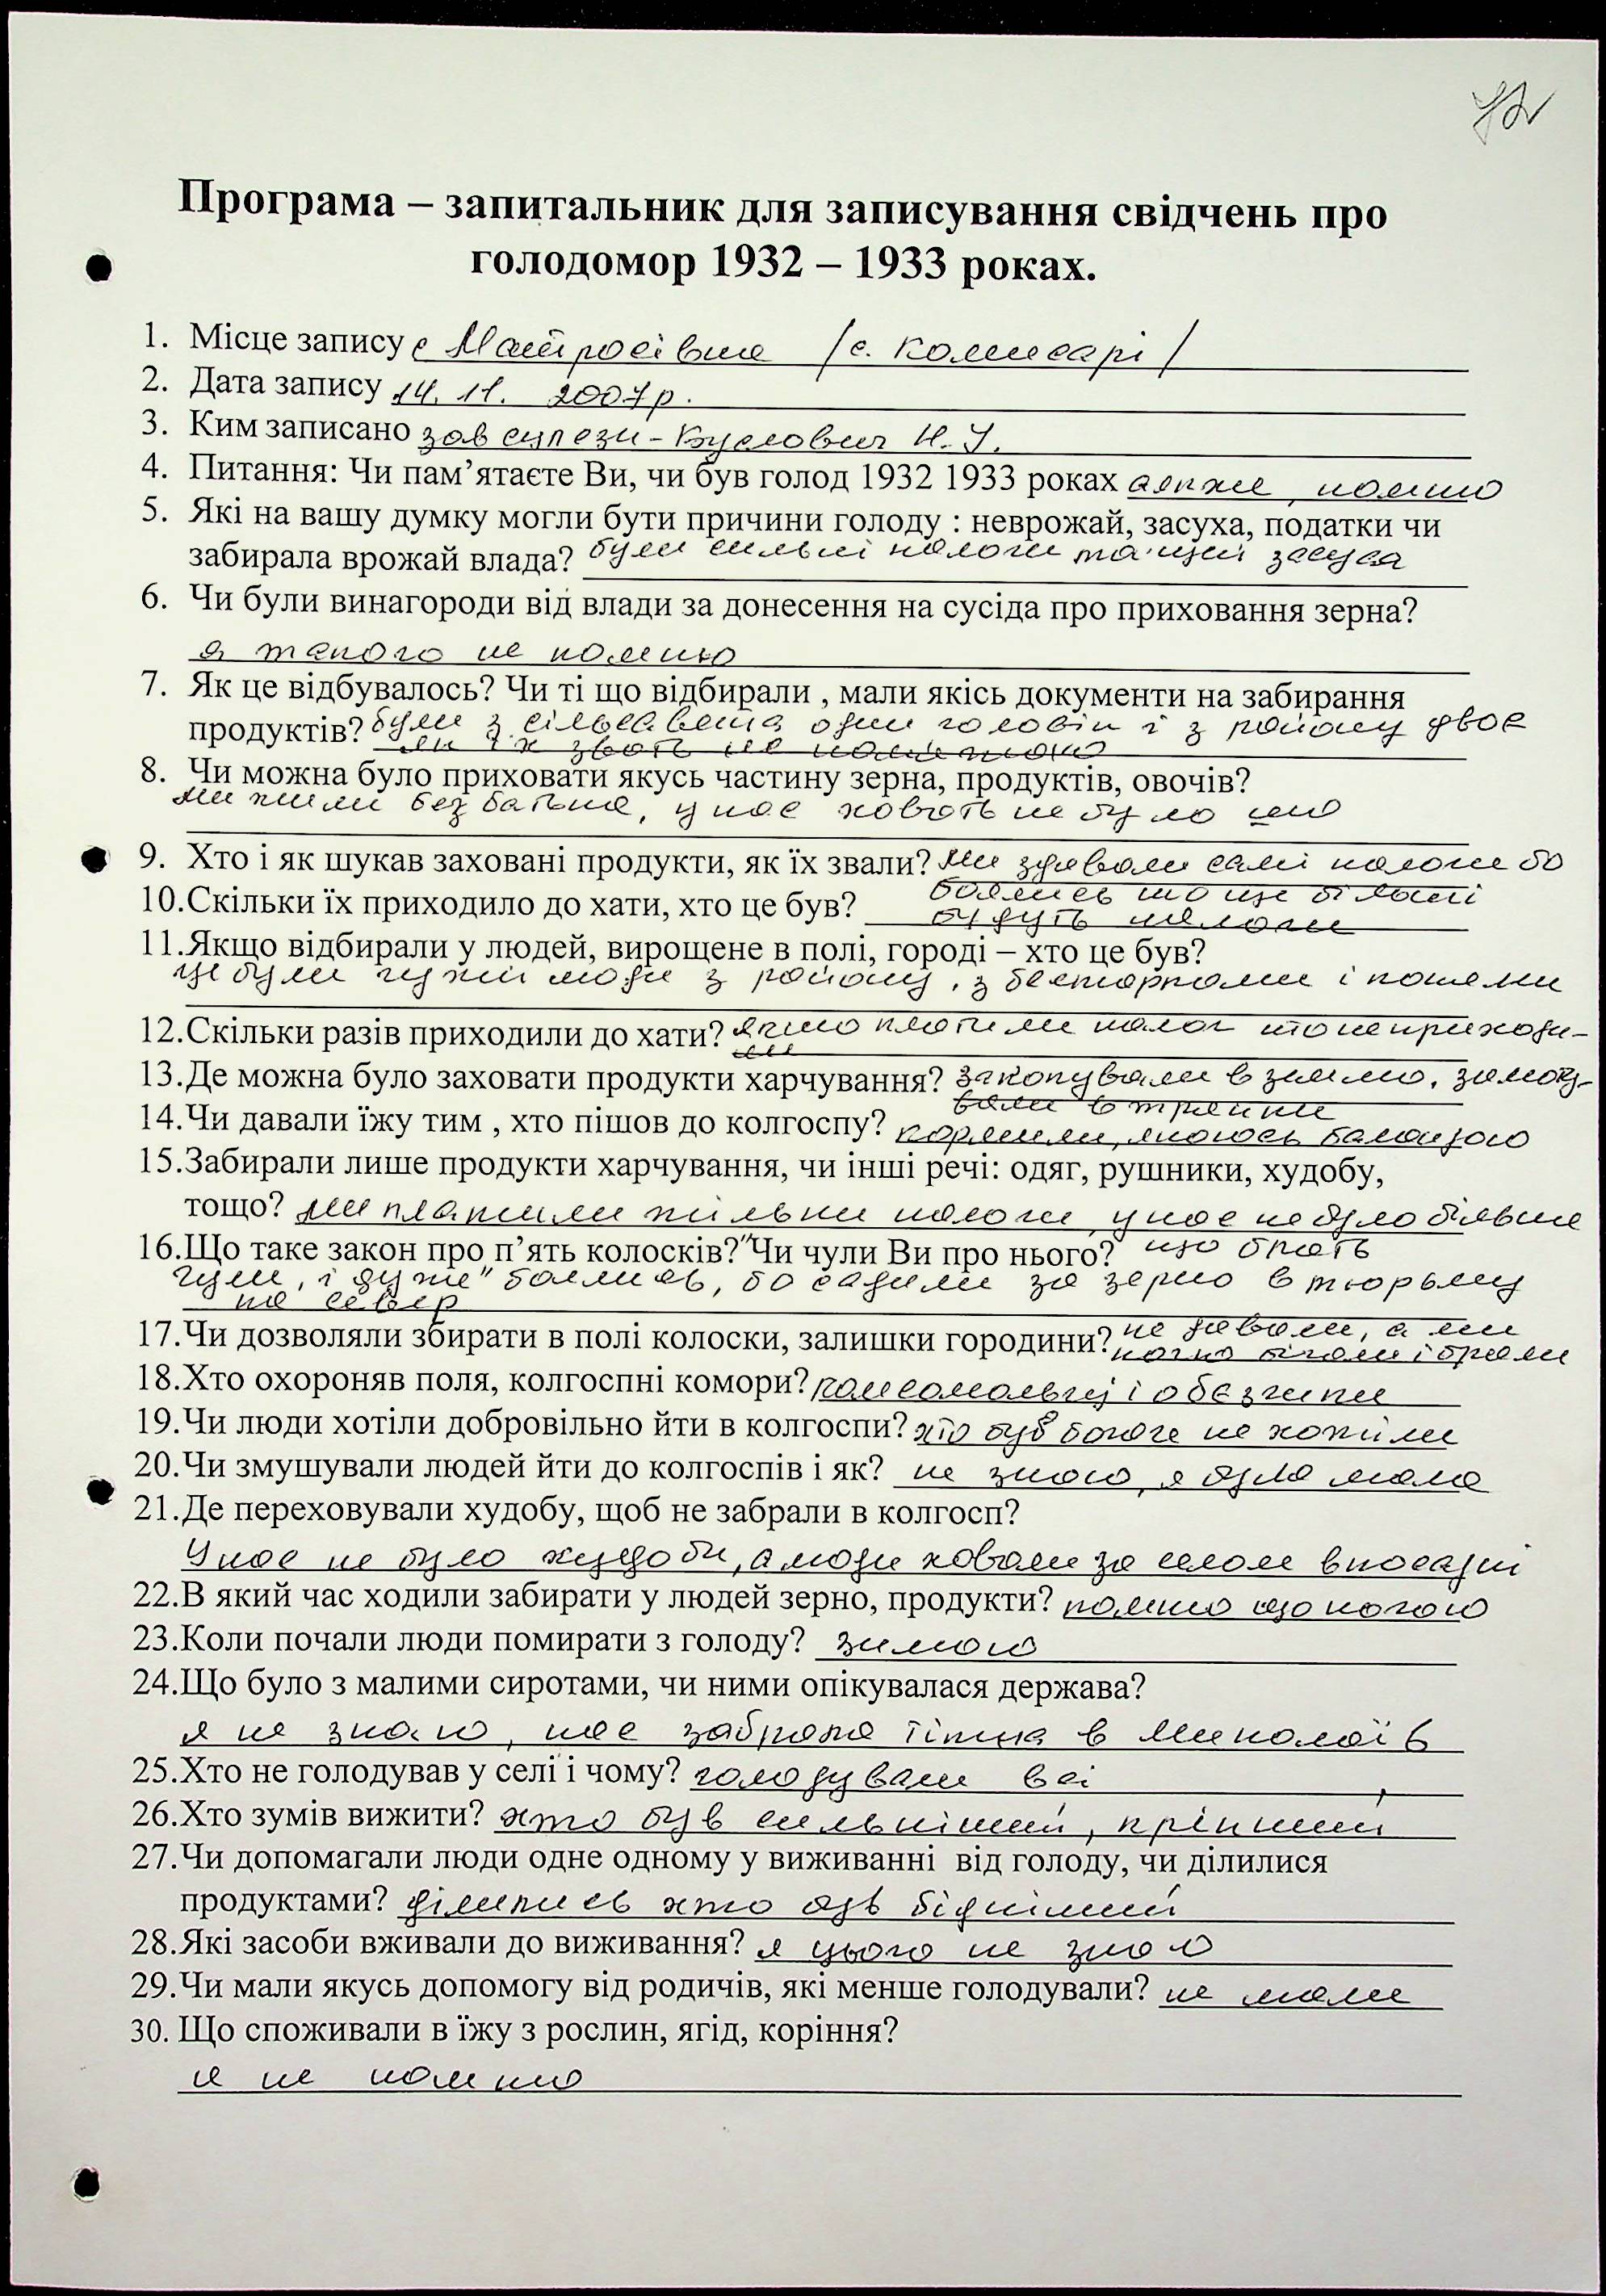 Програма – запитальник для записування свідчень про
голодомор 1932 – 1933 роках.
1. Місце запису с Матросівка /с. Комисарі/
2. Дата запису 14. 11. 2007р.
3. Ким записано И. У.
4. Питання: Чи пам’ятаєте Ви, чи був голод 1932 1933 роках помню
5. Які на вашу думку могли бути причини голоду : неврожай, засуха, податки чи
забирала врожай влада? були сильні налоги та й засуха
6. Чи були винагороди від влади за донесення на сусіда про приховання зерна?
я такого не помню
7. Як це відбувалось? Чи ті що відбирали , мали якісь документи на забирання
продуктів? були з сільсавета один чоловік і з району двоє
як їх звать не
8. Чи можна було приховати якусь частину зерна, продуктів, овочів?
ми жили без батька, у нас ховать не було що
9. Хто і як шукав заховані продукти, як їх звали? ми здавали самі налоги бо
боялись що ще більші
10.Скільки їх приходило до хати, хто це був? будуть налоги
11.Якщо відбирали у людей, вирощене в полі, городі – хто це був?
це були чужі люди з району, з бестарками і кошами
12.Скільки разів приходили до хати? якшо платили налог то не приходи-
ли
13.Де можна було заховати продукти харчування? закопували в землю, замоту-
вали в тряпки
14.Чи давали їжу тим , хто пішов до колгоспу? кормили, якоюсь баландою
15.Забирали лише продукти харчування, чи інші речі: одяг, рушники, худобу,
тощо? ми платили тільки налоги, у нас не було більше
16.Що таке закон про п’ять колосків?"Чи чули Ви про нього? що брать
чули, і дуже" боялись, бо садили за зерно в тюрьму
на сєвєр
17.Чи дозволяли збирати в полі колоски, залишки городини? не давали, а ми
ночью бігали і брали
18.Хто охороняв поля, колгоспні комори? комсомольці і обєзчики
19.Чи люди хотіли добровільно йти в колгоспи? хто був богаче не хотіли
20.Чи змушували людей йти до колгоспів і як? не знаю, я була мала
21.Де переховували худобу, щоб не забрали в колгосп?
У нас не було худоби, а люди ховали за селом в посадкі
22.В який час ходили забирати у людей зерно, продукти? помню що ночою
23.Коли почали люди помирати з голоду? зимою
24.Що було з малими сиротами, чи ними опікувалася держава?
я не знаю, нас забрала тітка в Миколаїв
25.Хто не голодував у селі і чому? голодували всі
26.Хто зумів вижити? хто був сильніший, кріпший
27.Чи допомагали люди одне одному у виживанні від голоду, чи ділилися
продуктами? ділились хто був бідніший
28.Які засоби вживали до виживання? я цього не знаю
29.Чи мали якусь допомогу від родичів, які менше голодували? не мали
30. Що споживали в їжу з рослин, ягід, коріння?
я не помню